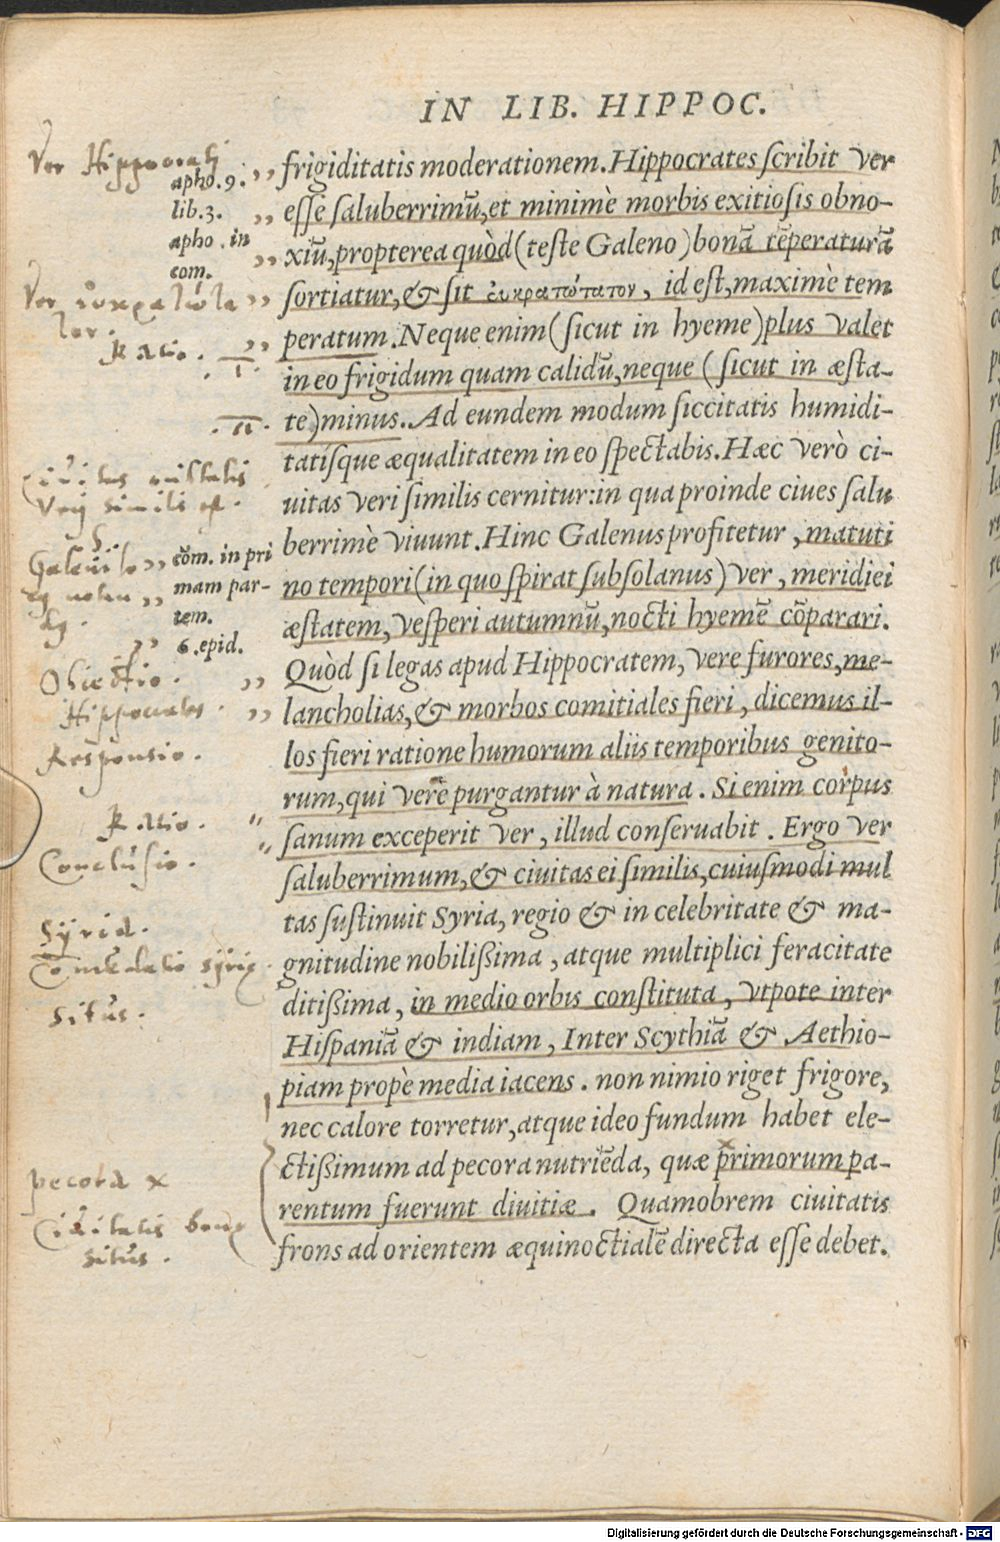 IN LIB. HIPPOC.
Ver Hippocrati
apho. 9.
lib. 3.
apho. in
com.
Ver
Ratio.
I
II
Ciuitas
Veri similis est.
Galeni
com. in pri
mam par-
tem.
6. epid.
Obiectio.
Hippocrates.
Responsio.
Ratio.
Conclusio.
Syria.
Comēdatio syrię.
Situs.
pecora x
Ciuitatis bonę
situs.
frigiditatis moderationem. Hippocrates scribit ver
esse saluberrimū, et minimè morbis exitiosis obno-
xiū, propterea quòd (teste Galeno) bonā tēperaturā
sortiatur, & sit εὐκρατώτατον, id est, maximè tem
peratum. Neque enim (sicut in hyeme) plus valet
in eo frigidum quam calidū, neque (sicut in æsta-
te) minus. Ad eundem modum siccitatis humidi-
tatisque æqualitatem in eo spectabis. Hæc verò ci-
uitas veri similis cernitur: in qua proinde ciues salu
berrimè viuunt. Hinc Galenus profitetur, matuti
no tempori (in quo spirat subsolanus) ver, meridiei
æstatem, vesperi autumnū, nocti hyemē cōparari.
Quòd si legas apud Hippocratem, vere furores, me-
lancholias, & morbos comitiales fieri, dicemus il-
los fieri ratione humorum aliis temporibus genito-
rum, qui vere purgantur à natura. Si enim corpus
sanum exceperit ver, illud conseruabit. Ergo ver
saluberrimum, & ciuitas ei similis, cuiusmodi mul
tas sustinuit Syria, regio & in celebritate & ma-
gnitudine nobilißima, atque multiplici feracitate
ditißima, in medio orbis constituta, vtpote inter
Hispaniā & indiam, Inter Scythiā & Aethio-
piam propè media iacens. non nimio riget frigore,
nec calore torretur, atque ideo fundum habet ele-
ctißimum ad pecora nutriēda, quæ primorum pa-
rentum fuerunt diuitiæ. Quamobrem ciuitatis
frons ad orientem æquinoctialē directa esse debet.
Digitalisierung gefördert durch die Deutsche Forschungsgemeinschaft - DFG